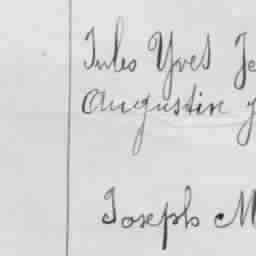 Jules Yves Je
Augustin J
Joseph M